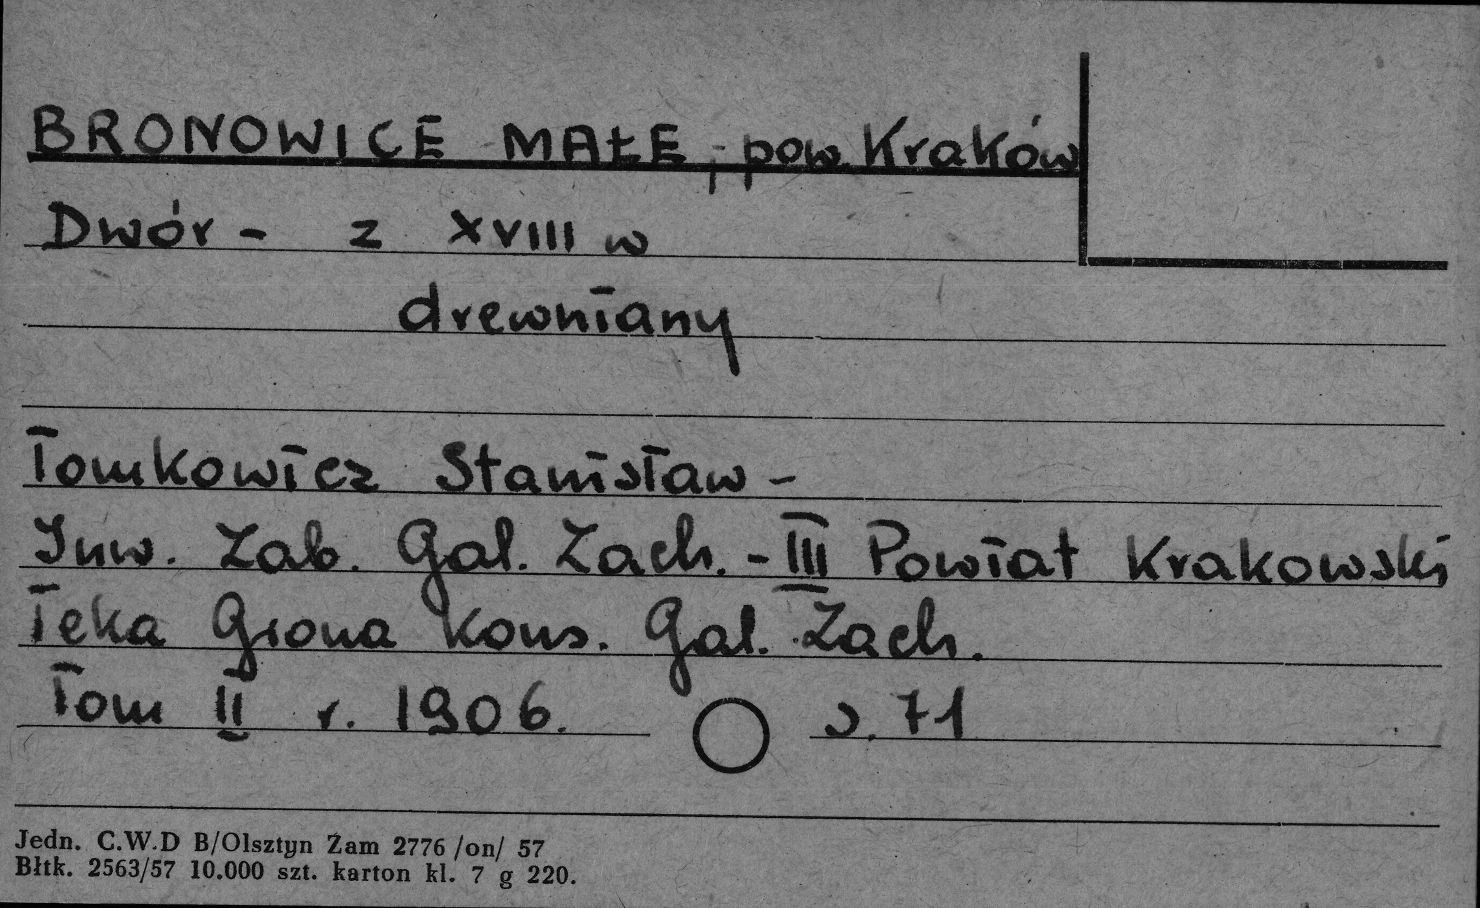 BRONOWICE MAŁE, pow. Kraków
Dwór - z XVIII w
drewniany
Tomkowicz Stanisław -
Inw. Zab. Gal. Zach. - III Powiat Krakowski
Teka Grona Kons. Gal. Zach.
Tom II r. 1906. s. 71
Jedn. C.W.D B/Olsztyn Zam 2776 /on/ 57
Błtk. 2563/57 10.000 szt. karton kl. 7 g 220.